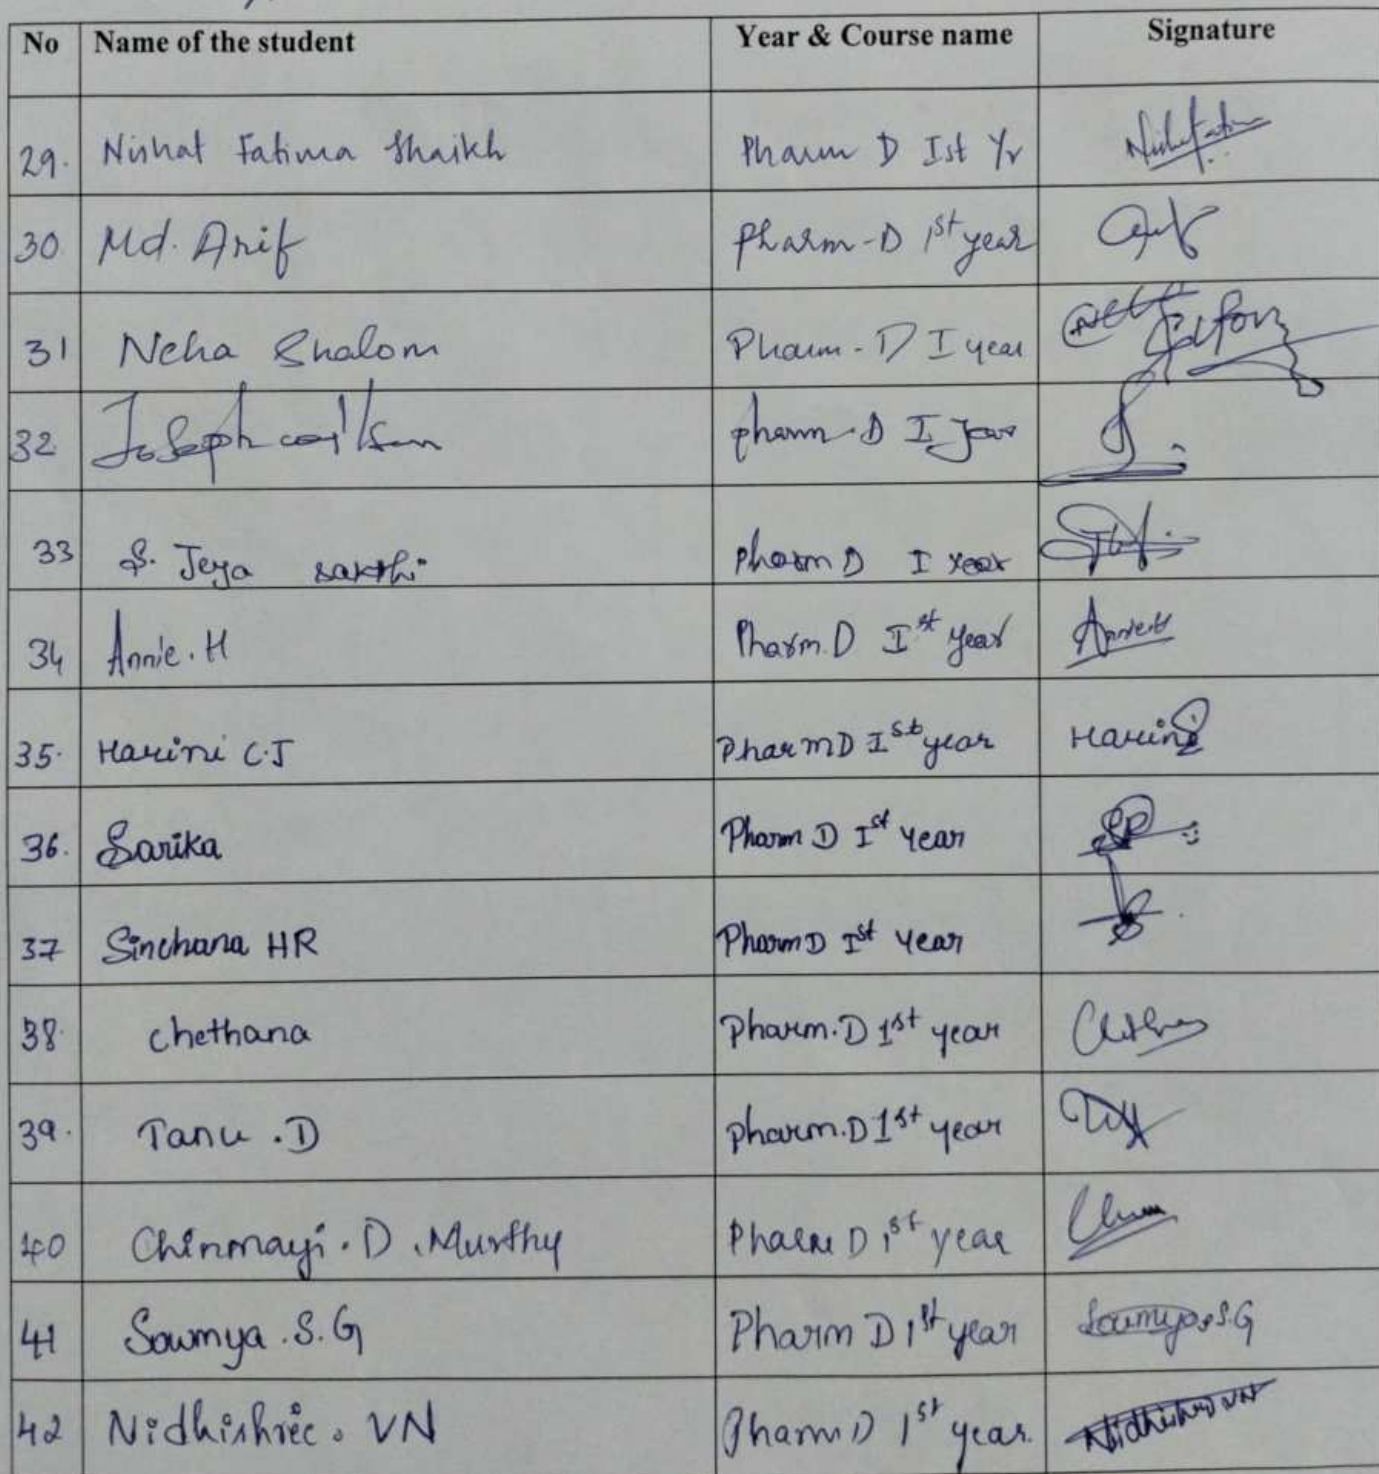 No Name of the student Year & Course name Signature
29. Nishat Fatima Shaikh Pharm D Ist Yr
30. Md. Arif Pharm-D 1st year
31 Neha Shalom Pharm-D I year
32. Joseph wilson pharm-D I year
33 S. Jeya sakthi Pharm D I year
34 Annie.H Pharm.D Ist Year Annie.H
35. Harini C.J PharmD Ist year Harini
36. Sarika Pharm D Ist Year
37 Sinchana HR Pharm D Ist Year
38. chethana Pharm.D 1st year
39. Tanu .D pharm.D 1st year
40 Chinmayi. D .Murthy Pharm D 1st year
41 Sowmya .S.G Pharm D 1st year Sowmya.S.G
42 Nidhishree. VN Pharm D 1st year. Nidhishree VN